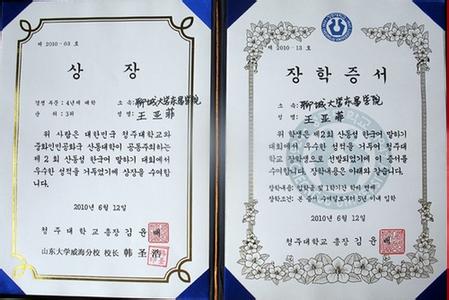 제 2010-03 호
상 장
경쟁부문 : 4년제 대학
순 위 : 3위
소 속 : 聊城大学东昌学院
성 명 : 王亚菲
위 사람은 대한민국 청주대학교와
중화인민공화국 산동대학이 공동주최하는
제 2 회 산동성 한국어 말하기 대회에서
우수한 성적을 거두었기에 상장을 수여함.
2010년 6월 12일
청 주 대 학 교 총 장 김 윤 배
山东大学威海分校 校长 韩 圣 浩
제 2010-13 호
장 학 증 서
소 속 : 聊城大学东昌学院
성 명 : 王亚菲
위 학생은 제2회 산동성 한국어 말하기
대회에서 우수한 성적을 거두어 청주
대학교 장학생으로 선발되었기에 이 증서를
수여합니다. 장학내용은 아래와 같습니다.
장학내용: 입학금 및 1학기간 학비 면제
장학조건: 본 증서 수여일로부터 5년 이내 입학
2010년 6월 12일
청 주 대 학 교 총 장 김 윤 배